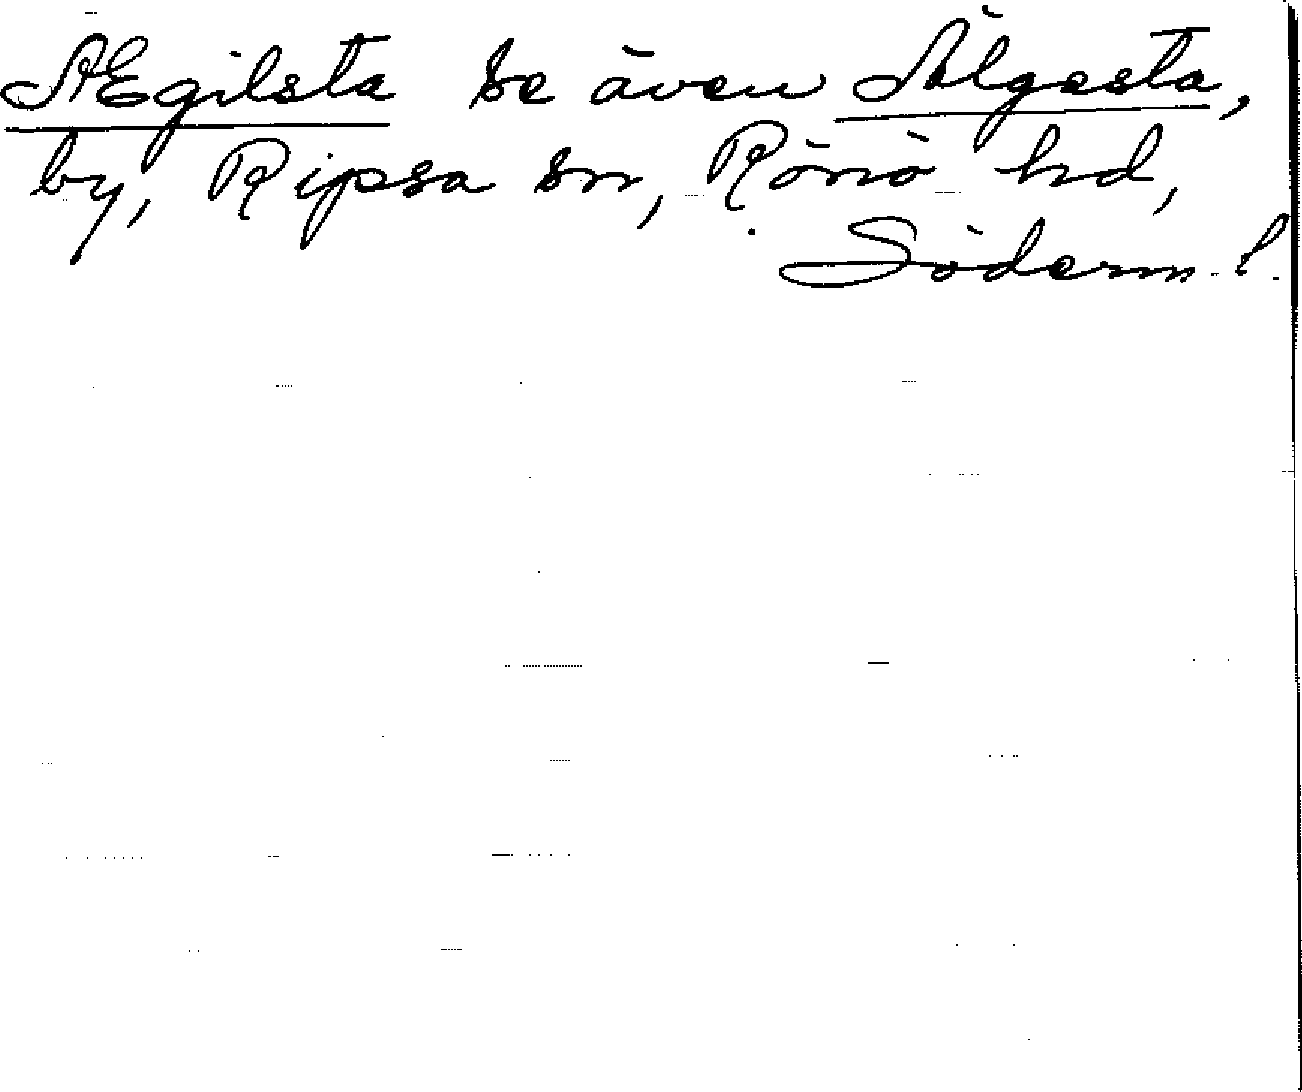 Ægilsta se även Älgesta,
by, Ripsa sn, Rönö hd,
Söderm. l.